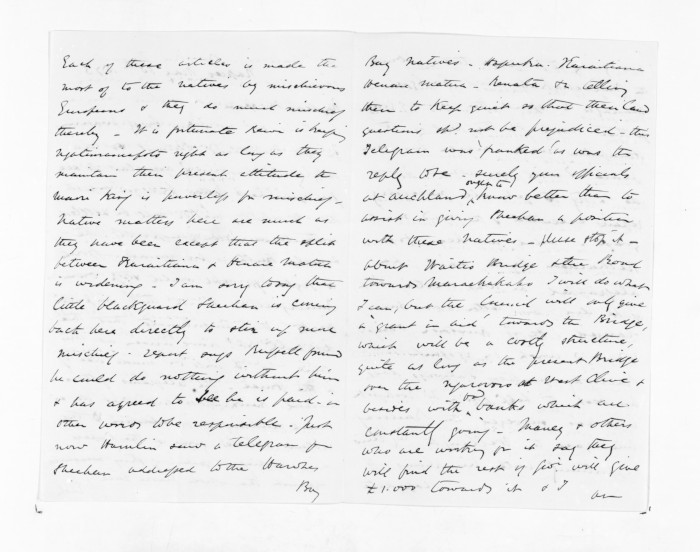 Each of these articles is made the
most of to the natives by mischievous
Europeans & they do much mischief
thereby - It is fortunate Kawi is keeping
Ngatimaniapoto right as long as they
maintain their present attitude the
Maori King is powerless for mischief -
Native matters here are much as
they have been except that the split
between Karaitiana & Henare Matua
is widening - I am sorry to say that
little blackguard Sheehan is coming
back here directly to stir up more
mischief - report says Russell found
he could do nothing without him
& has agreed to see he is paid - in
other words to be responsible - Just
now Hamlin saw a telegram from
Sheehan addressed to the Hawkes
Bay
Bay Natives - Karaitiana
Henare Matua - Renata &c telling
them to keep quiet so that their land
questions shd. not be prejudiced - this
Telegram was 'franked' as was the
reply to be - surely your officials
at Auckland ought to know better than to
assist in giving Sheehan a position
with these Natives - please stop it -
about Waitio Bridge & the Road
towards Maraekakaho I will do what
I can, but the Council will only give
a 'grant in aid' towards the Bridge,
which will be a costly structure,
quite as long as the present Bridge
over the Ngaruroro at West Clive &
besides with bad banks which are
constantly going - Maney & others
who are working for it say they
will find the rest if Govt will give
£1.000 towards it & I am